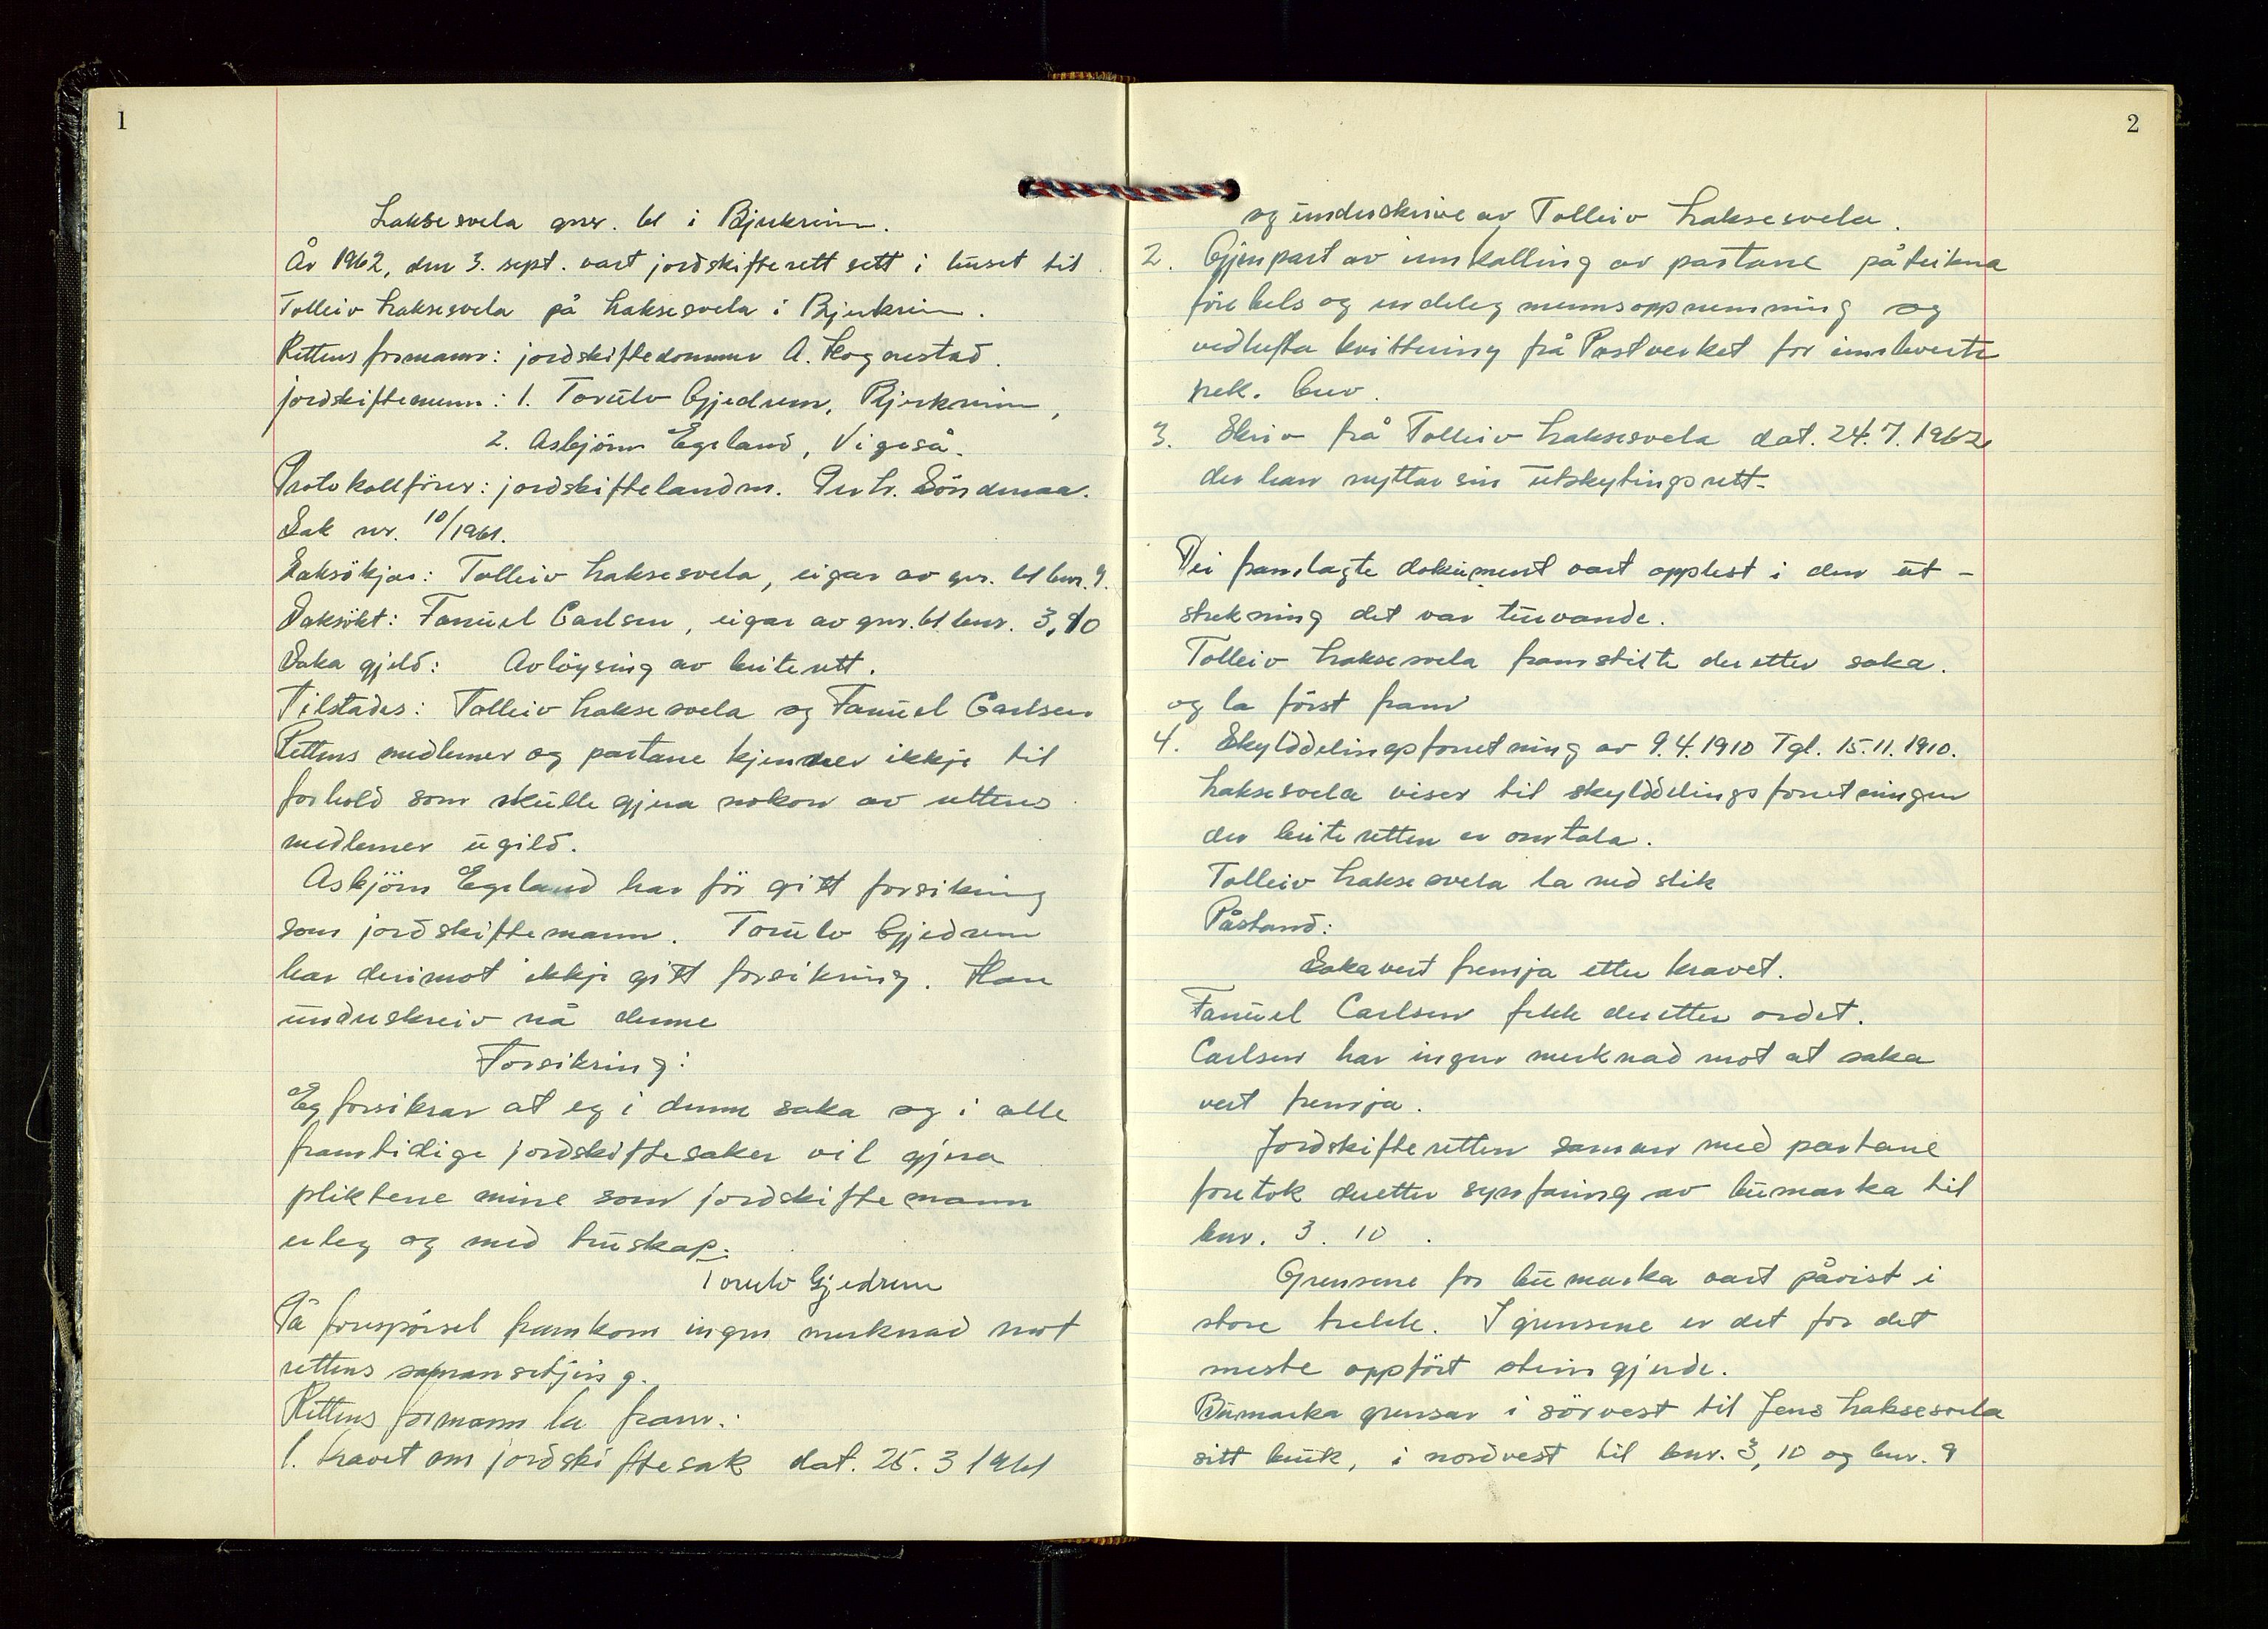 1
Laksesvela gnr. 61 i Bjerkreim.
År 1962, den 3. sept. vart jordskifterett sett i huset til
Tolleiv Laksesvela på Laksesvela i Bjerkreim.
Rettens formann: jordskiftedommer A. Hognestad.
jordskiftemenn: 1. Torulv Gjedrem, Bjerkreim,
2. Asbjörn Egeland, Vigeså.
Protokollförer: jordskiftelandm. Söndenaa.
Sak nr. 10/1961.
Saksökjar: Tolleiv Laksesvela, eigar av gnr. 61 bnr. 9.
Saksökt: Fanuel Carlsen, eigar av gnr. 61 bnr. 3, 10
Saka gjeld: Avlöysing av beiterett.
Tilstades: Tolleiv Laksesvela og Fanuel Carlsen
Rettens medlemer og partane kjenner ikkje til
forhold som skulle gjera nokon av rettens
medlemer ugild.
Asbjörn Egeland har för gitt forsikring
som jordskiftemann. Torulv Gjedrem
har derimot ikkje gitt forsikring. Han
underskreiv nå denne
Forsikring:
Eg forsikrar at eg i denne saka og i alle
framtidige jordskiftesaker vil gjera
pliktene mine som jordskiftemann
erleg og med truskap.
Torulv Gjedrem
På forespörsel framkom ingen merknad mot
rettens samansetjing.
Rettens formann la fram:
1. Kravet om jordskiftesak dat. 25. 3 1961
2
og underskrive av Tolleiv Laksesvela.
2. Gjenpart av innkalling av partane påteikna
förebels og endeleg mennsoppnemning og
vedhefta kvittering frå Postverket for innleverte
rek. brev.
3. Skriv frå Tolleiv Laksesvela dat. 24.7.1962
der han nyttar sin utskytingsrett.
Dei framlagte dokument vart opplest i den ut-
strekning det var turvande.
Tolleiv Laksesvela framstilte deretter saka.
og la först fram
4. Skylddelingsforretning av 9.4.1910 Tgl. 15.11.1910.
Laksesvela viser til skylddelingsforretningen
der beiteretten er omtala.
Tolleiv Laksesvela la ned slik
Påstand:
Saka vert fremja etter kravet.
Fanuel Carlsen fekk deretter ordet.
Carlsen har ingen merknad mot at saka
vert fremja.
Jordskifteretten saman med partane
foretok deretter synfaring av bumarka til
bnr. 3. 10.
Grensene for bumarka vart påvist i
store trekk. I grensene er det for det
meste oppfört steingjerde.
Bumarka grensar i sörvest til Jens Laksesvela
sitt bruk, i nordvest til bnr. 3, 10 og bnr. 9